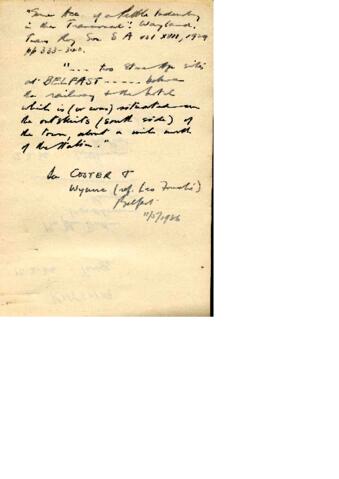 "Some Acc. of a Pebble Industry
in the Transvaal": Wayland.
Trans Roy Soc S A vol XVII, 1929
pp 333-340.
"... two Stone Age sites
at BELFAST ----- between
the railway & the hotel
which is (or was) situated on
the outskirts (south side) of
the town, about a mile north
of the station."
COSTER &
Wynne (ref. Leo Fouché)
Belfast
11/5/1936